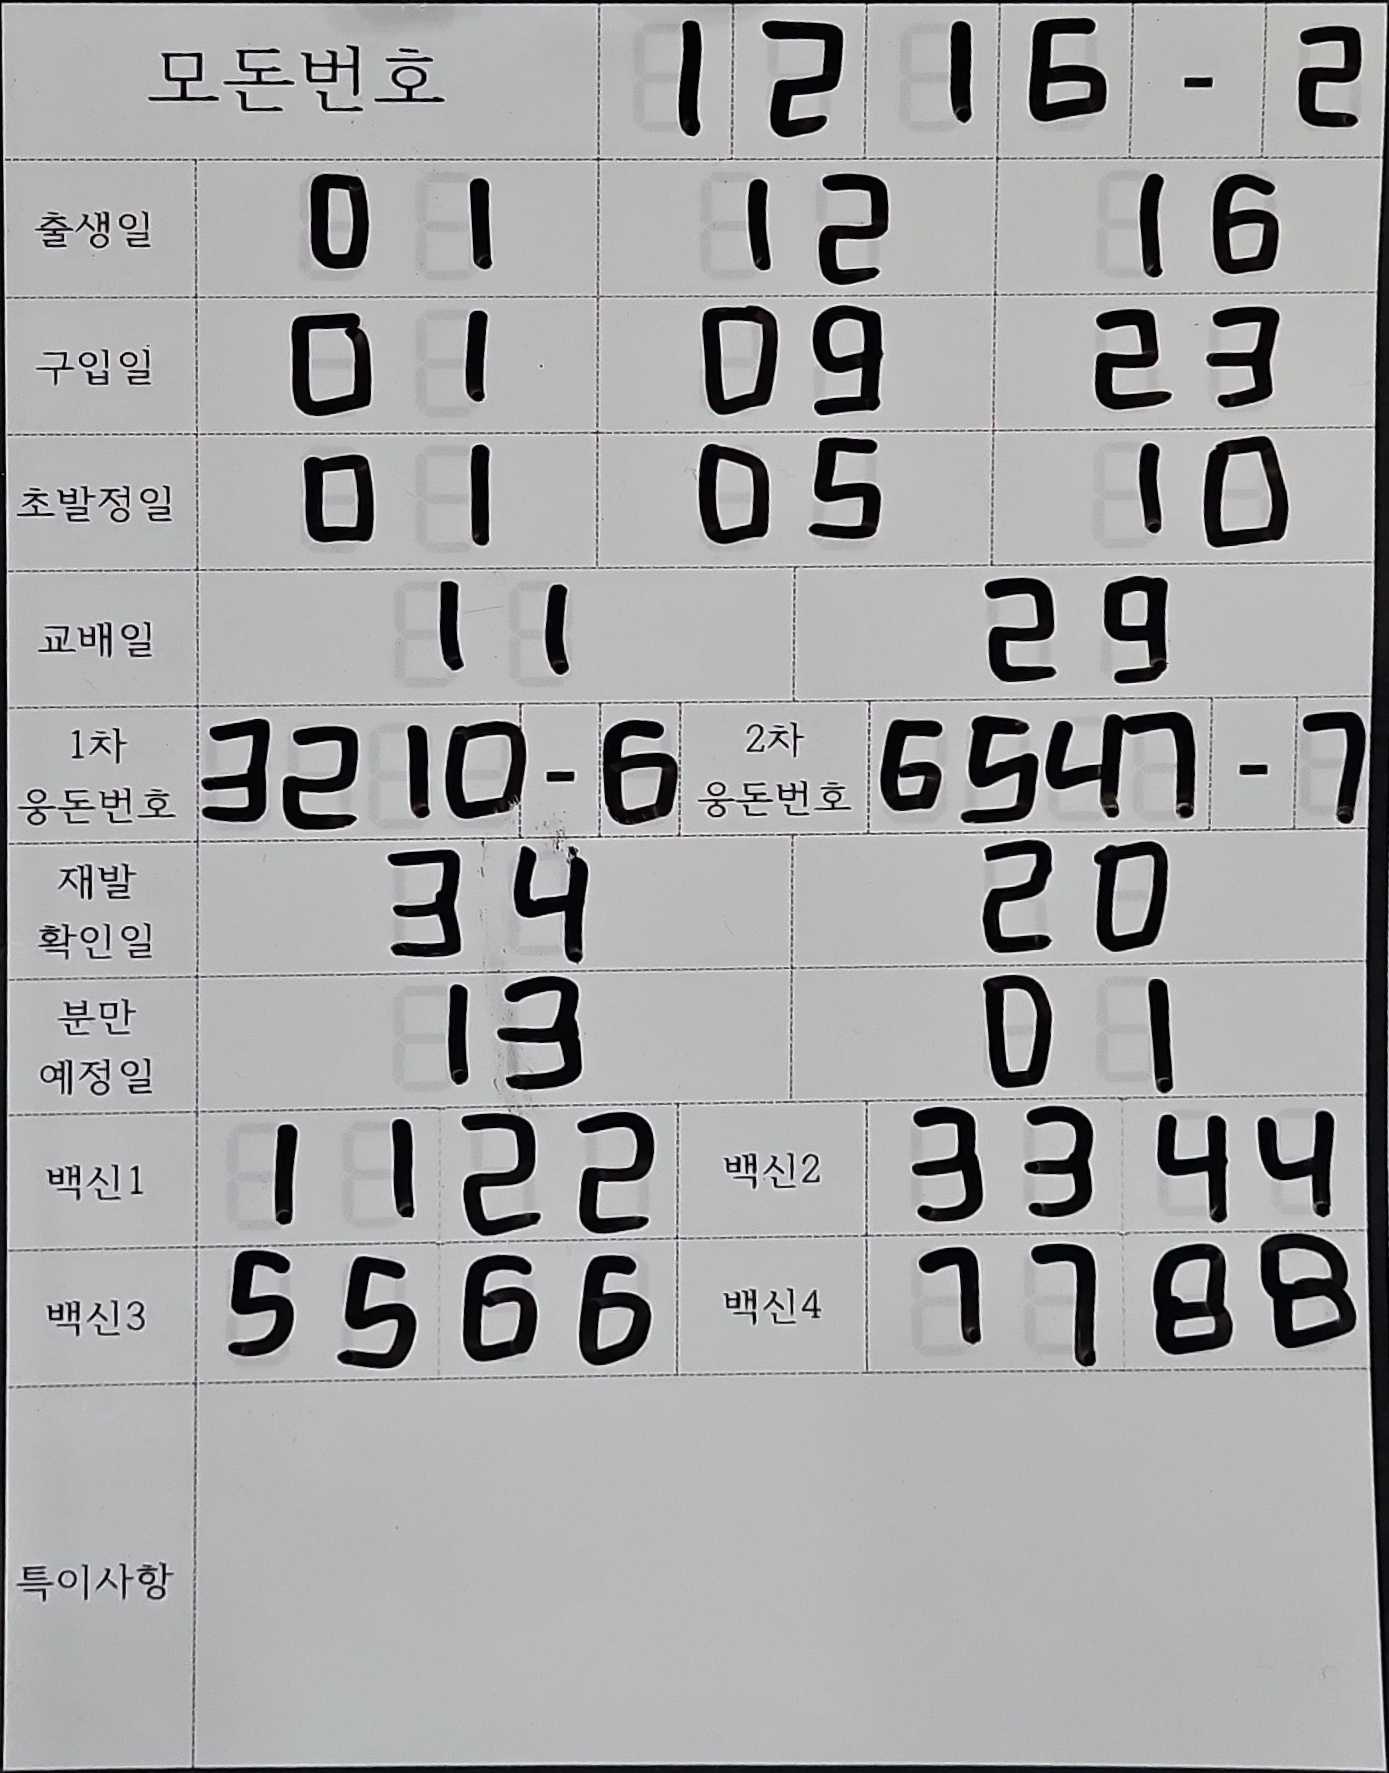 모돈번호 1216-2
출생일 01 12 16
구입일 01 09 23
초발정일 01 05 10
교배일 11 29
1차 웅돈번호 3210-6 2차 웅돈번호 6547-7
재발 확인일 34 20
분만 예정일 13 01
백신1 11 22 백신2 33 44
백신3 55 66 백신4 77 88
특이사항